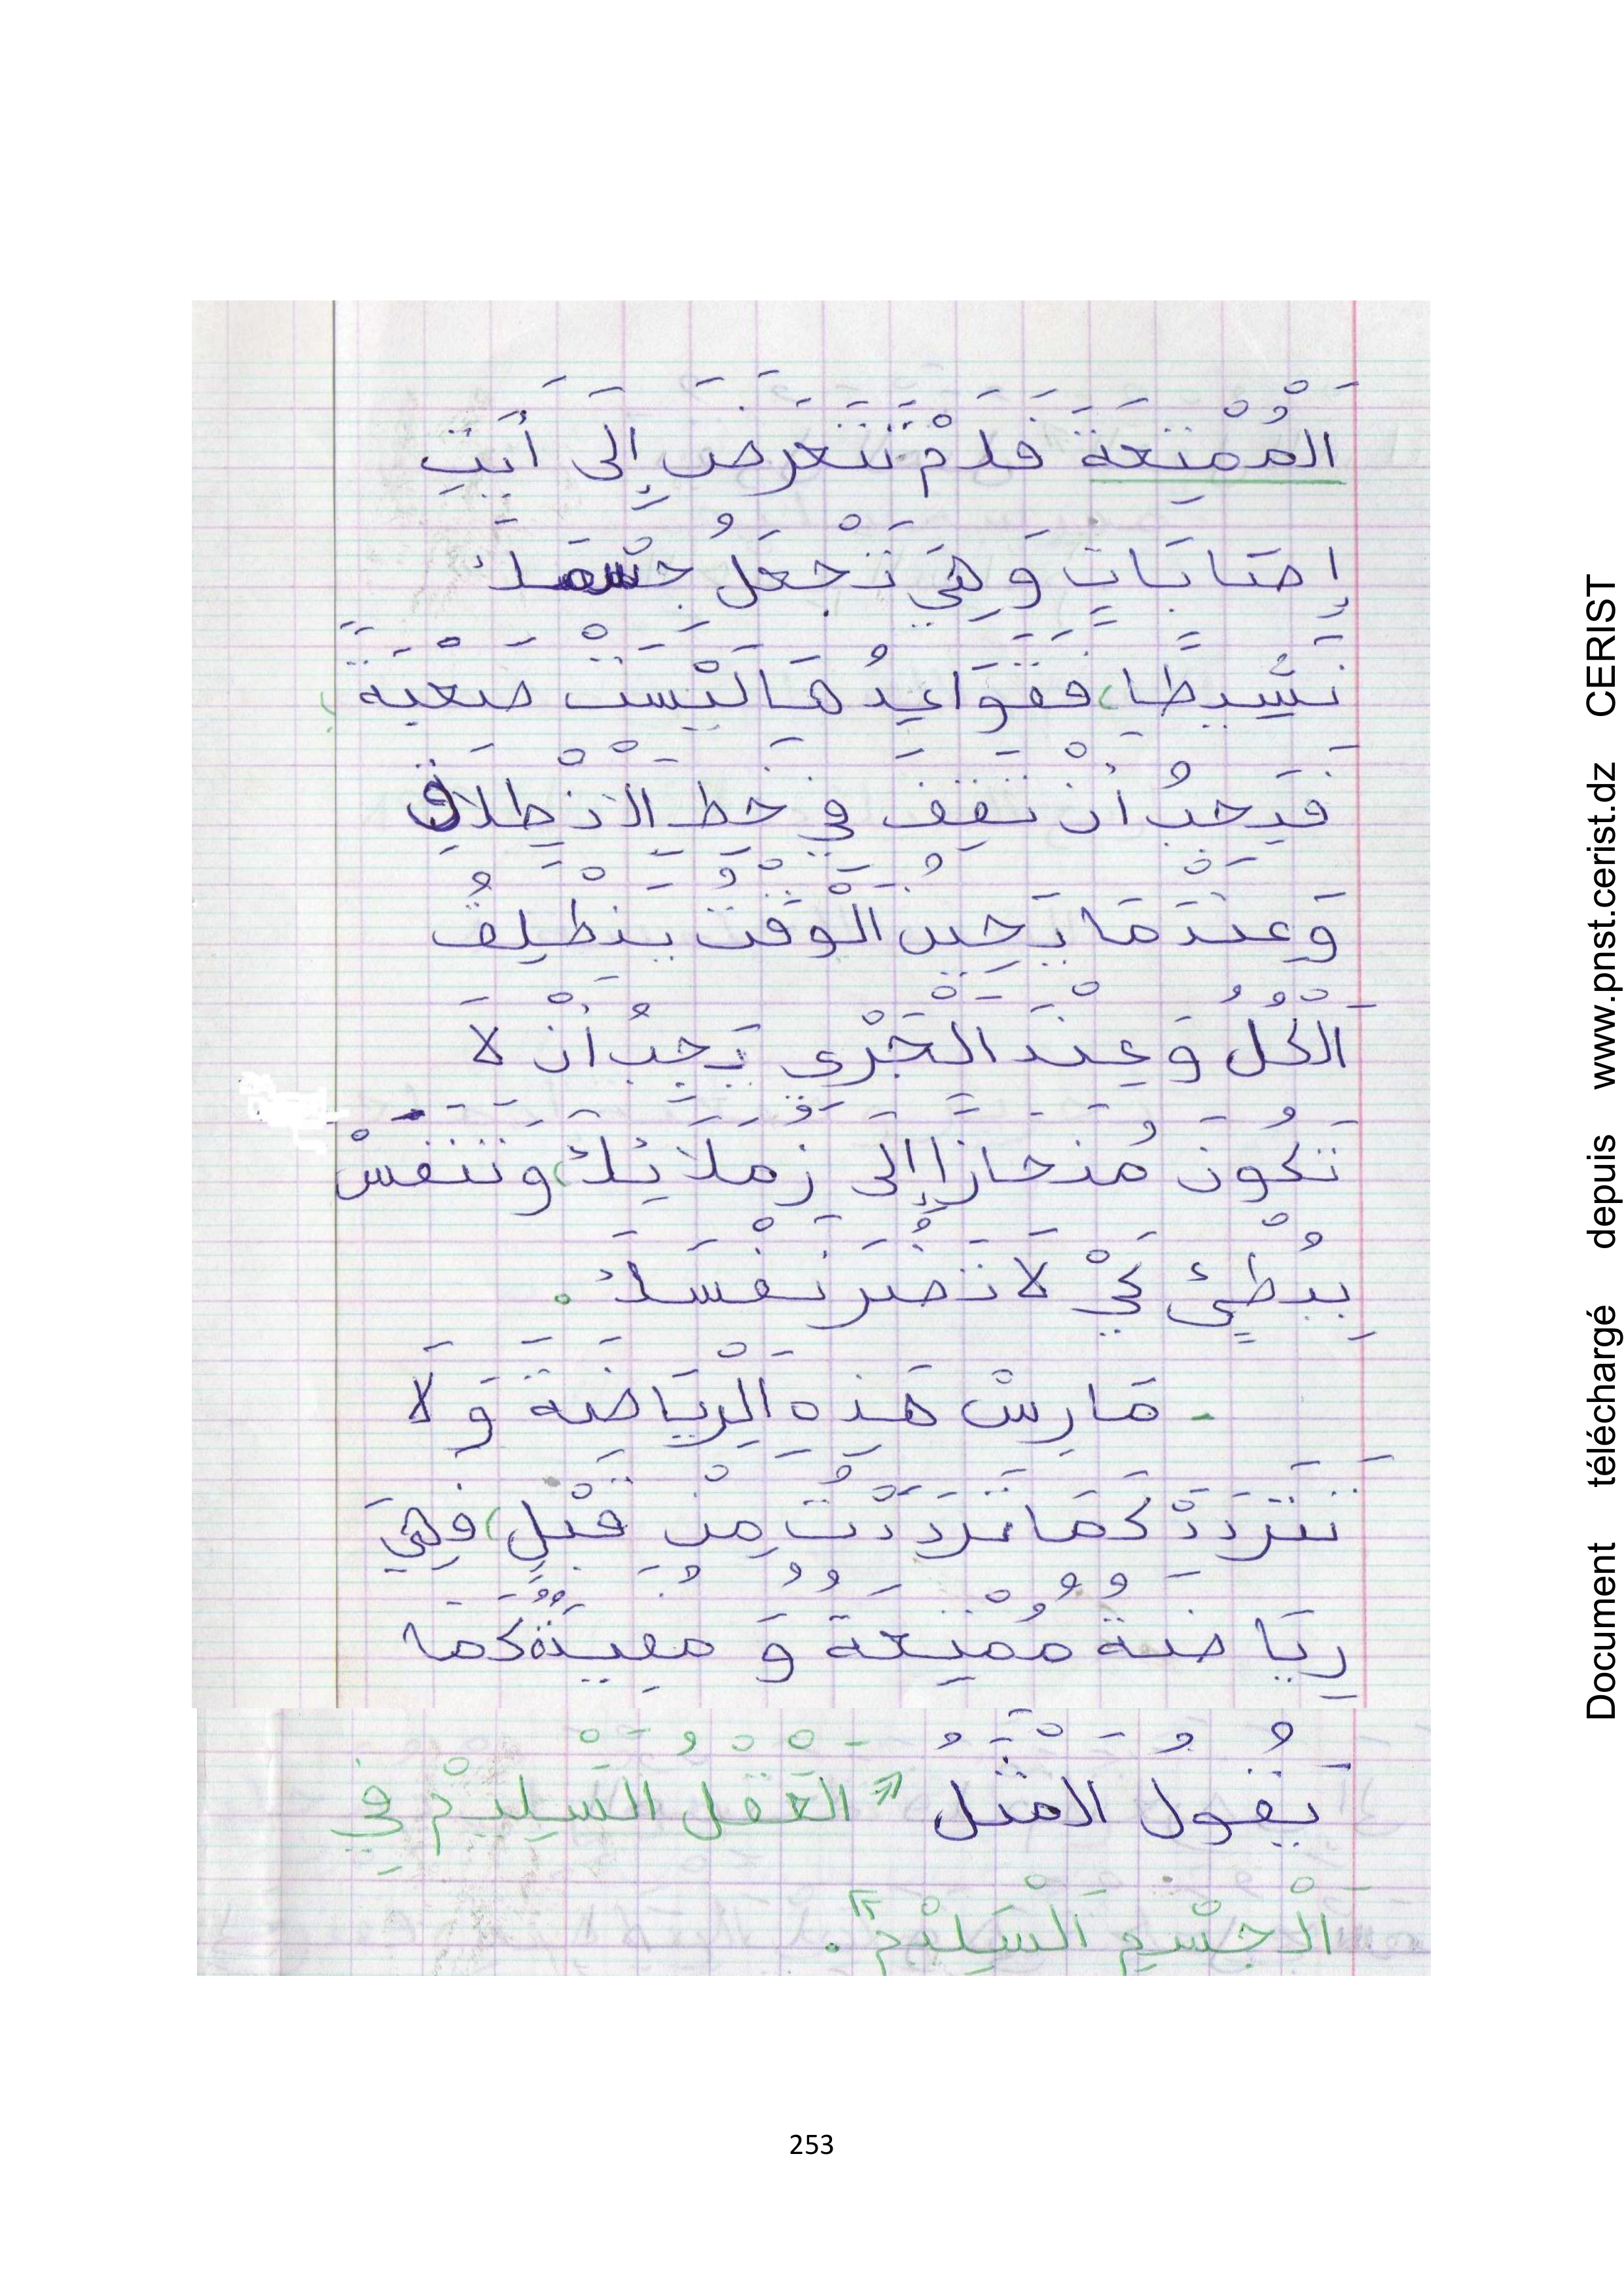 اَلْمُمْتِعَةَ فَلَمْ تَتَعَرَضَ إِلَى أَيَتِ
إِصَابَاتٍ وَهِيَ تَجْعَلُ جِسْمَكَ
نَشِيطًا، فَقَوَاعِدُهَا لَيْسَتْ صَعْبَةً،
فَيَجِبُ أَنْ تَقِفَ فِي خَطِ الْإِنْطِلَاقِ
وَعِنْدَمَا يَحِينُ الْوَقْتُ يَنْطَلِقُ
اَلْكُلُ وَعِنْدَ الْجَرْيِ يَجِبُ أَنْ لَا
تَكُونَ مُنْحَازًا إِلَى زُمَلَائِكَ، وَتَتَنَفَسْ
بِبُطْئٍ كَيْ لَا تَضُرَ نَفْسَكَ.
- مَارِسْ هَذِهِ الْرِيَاضَةَ وَلَا
تَتَرَدَدْ كَمَا تَرَدَدْتُ مِنْ قَبْلِ، فَهِيَ
رِيَاضَةٌ مُمْتِعَةٌ وَ مُفِيدَةٌ كَمَا
يَقُولُ الْمَثَلُ "اَلْعَقْلُ الْسَلِيمْ فِي
اَلْجِسْمِ اَلْسَلِيْمْ".
253
Document téléchargé depuis www.pnst.cerist.dz CERIST